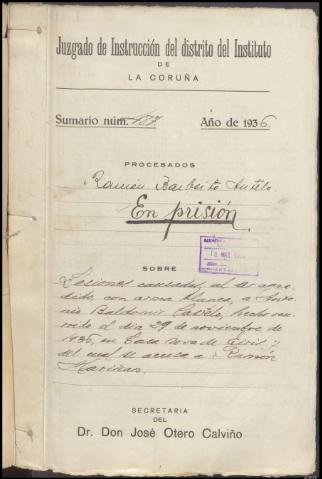 Juzgado de Instrucción del distrito del Instituto
DE
LA CORUÑA
Sumario núm. 187 Año de 1936
PROCESADOS
Ramón Barbeito Antelo
En prisión
SOBRE
Lesiones causadas, al
con arma blanca, a
Baldomir hecho
el día 29 de noviembre de
1936, en Casa
del cual se acusa a Ramón
Mariñas
SECRETARIA
DEL
Dr. Don José Otero Calviño